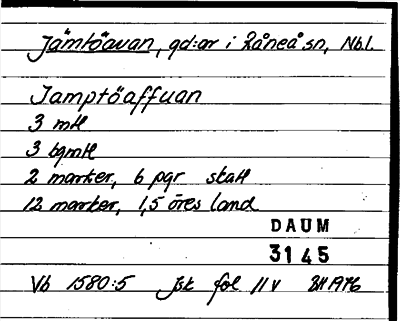 Jämtöavan, gd:ar i Råneå sn, Nbl.
Jamptöaffuan
3 mtl
3 bgmtl
2 marker, 6 pgr skatt
12 marker, 1,5 öres land
DAUM
3145
Vb 1580:5 Jbk fol 11 v BH 1976